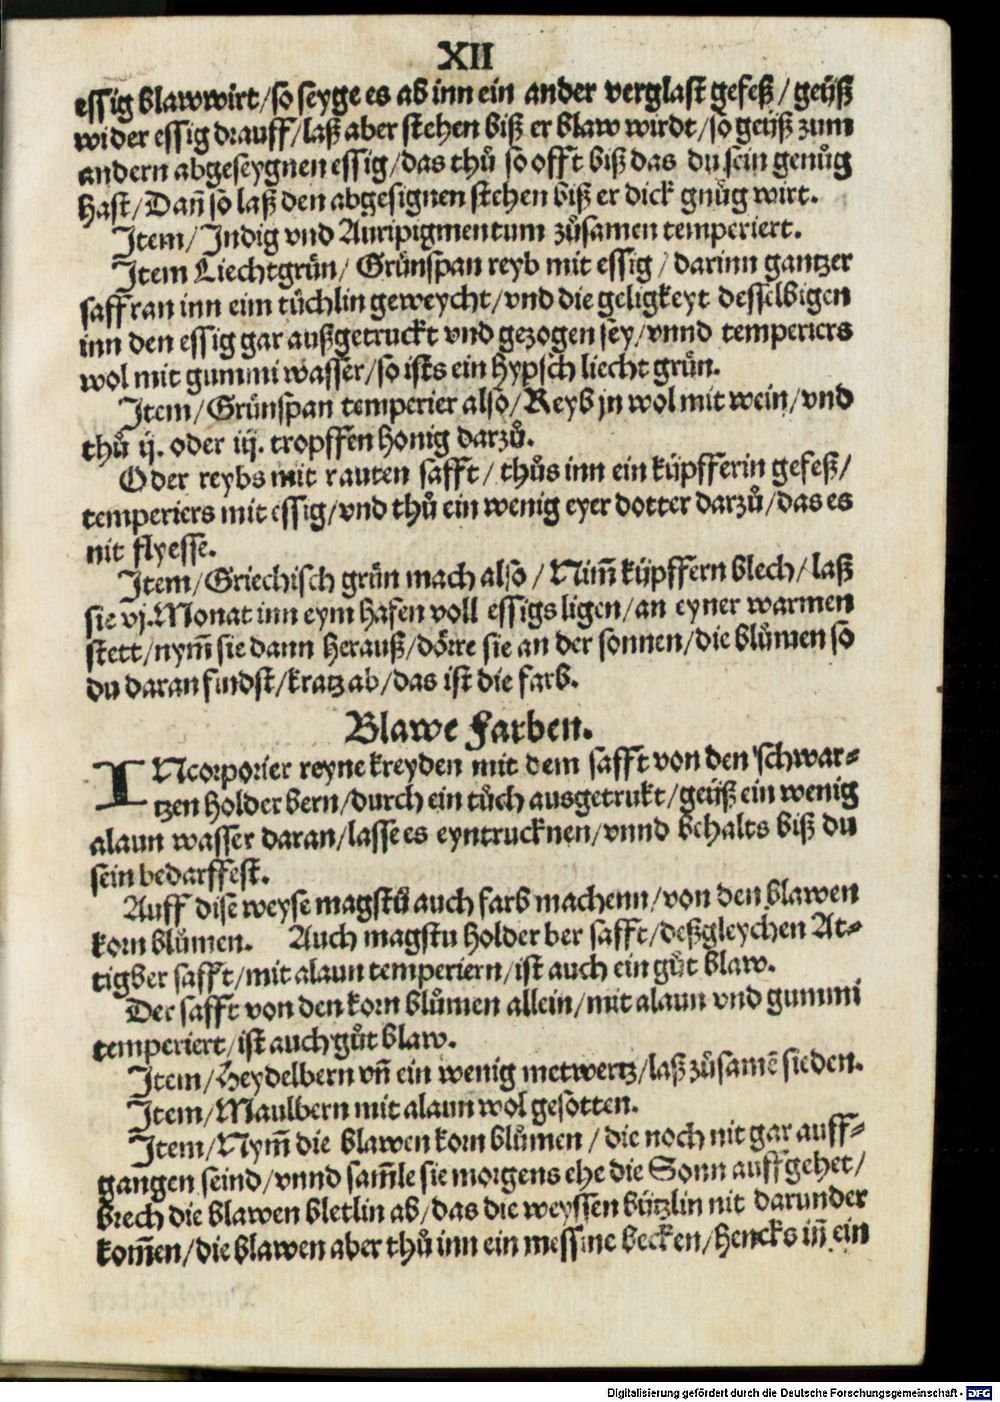 XII
essig blaw wirt/so seyge es ab inn ein ander verglast gefeß/geüß
wider essig drauff/laß aber stehen biß er blaw wirdt/so geüß zum
andern abgeseygnen essig/das thů so offt biß das du sein genůg
hast/Dañ so laß den abgesignen stehen biß er dick gnůg wirt.
Item/Indig vnd Auripigmentum zůsamen temperiert.
Item Liechtgrün/ Grünspan reyb mit essig/darinn gantzer
saffran inn eim tüchlin geweycht/vnd die geligkeyt desselbigen
inn den essig gar außgetruckt vnd gezogen sey/vnnd temperiers
wol mit gummi wasser/so ists ein hypsch liecht grün.
Item/Grünspan temperier also/Reyb jn wol mit wein/vnd
thů ij. oder iij. tropffen honig darzů.
Oder reybs mit rauten safft/thůs inn ein küpfferin gefeß/
temperiers mit essig/vnd thů ein wenig eyer dotter darzů/das es
nit flyesse.
Item/Griechisch grün mach also/Nim̃ küpffern blech/laß
sie vj. Monat inn eym hafen voll essigs ligen/an eyner warmen
stett/nym̃ sie dann herauß/dörre sie an der sonnen/die blůmen so
du daran findst/kratz ab/das ist die farb.
Blawe Farben.
INcorporier reyne kreyden mit dem safft von den schwar-
tzen holder bern/durch ein tůch ausgetrukt/geüß ein wenig
alaun wasser daran/lasse es eyntrucknen/vnnd behalts biß du
sein bedarffest.
Auff dise weyse magstů auch farb machenn/von den blawen
korn blůmen. Auch magstu holder ber safft/deßgleychen At-
tigber safft/mit alaun temperiern/ist auch ein gůt blaw.
Der safft von den korn blůmen allein/mit alaun vnd gummi
temperiert/ist auch gůt blaw.
Item/Heydelbern vñ ein wenig metwertz/laß zůsamē sieden.
Item/Maulbern mit alaun wol gesotten.
Item/Nym̃ die blawen korn blůmen/die noch nit gar auff-
gangen seind/vnnd sam̃le sie morgens ehe die Sonn auffgehet/
brech die blawen bletlin ab/das die weyssen bützlin nit darunder
kom̃en/die blawen aber thů inn ein messine becken/hencks iñ ein
Digitalisierung gefördert durch die Deutsche Forschungsgemeinschaft - DFG